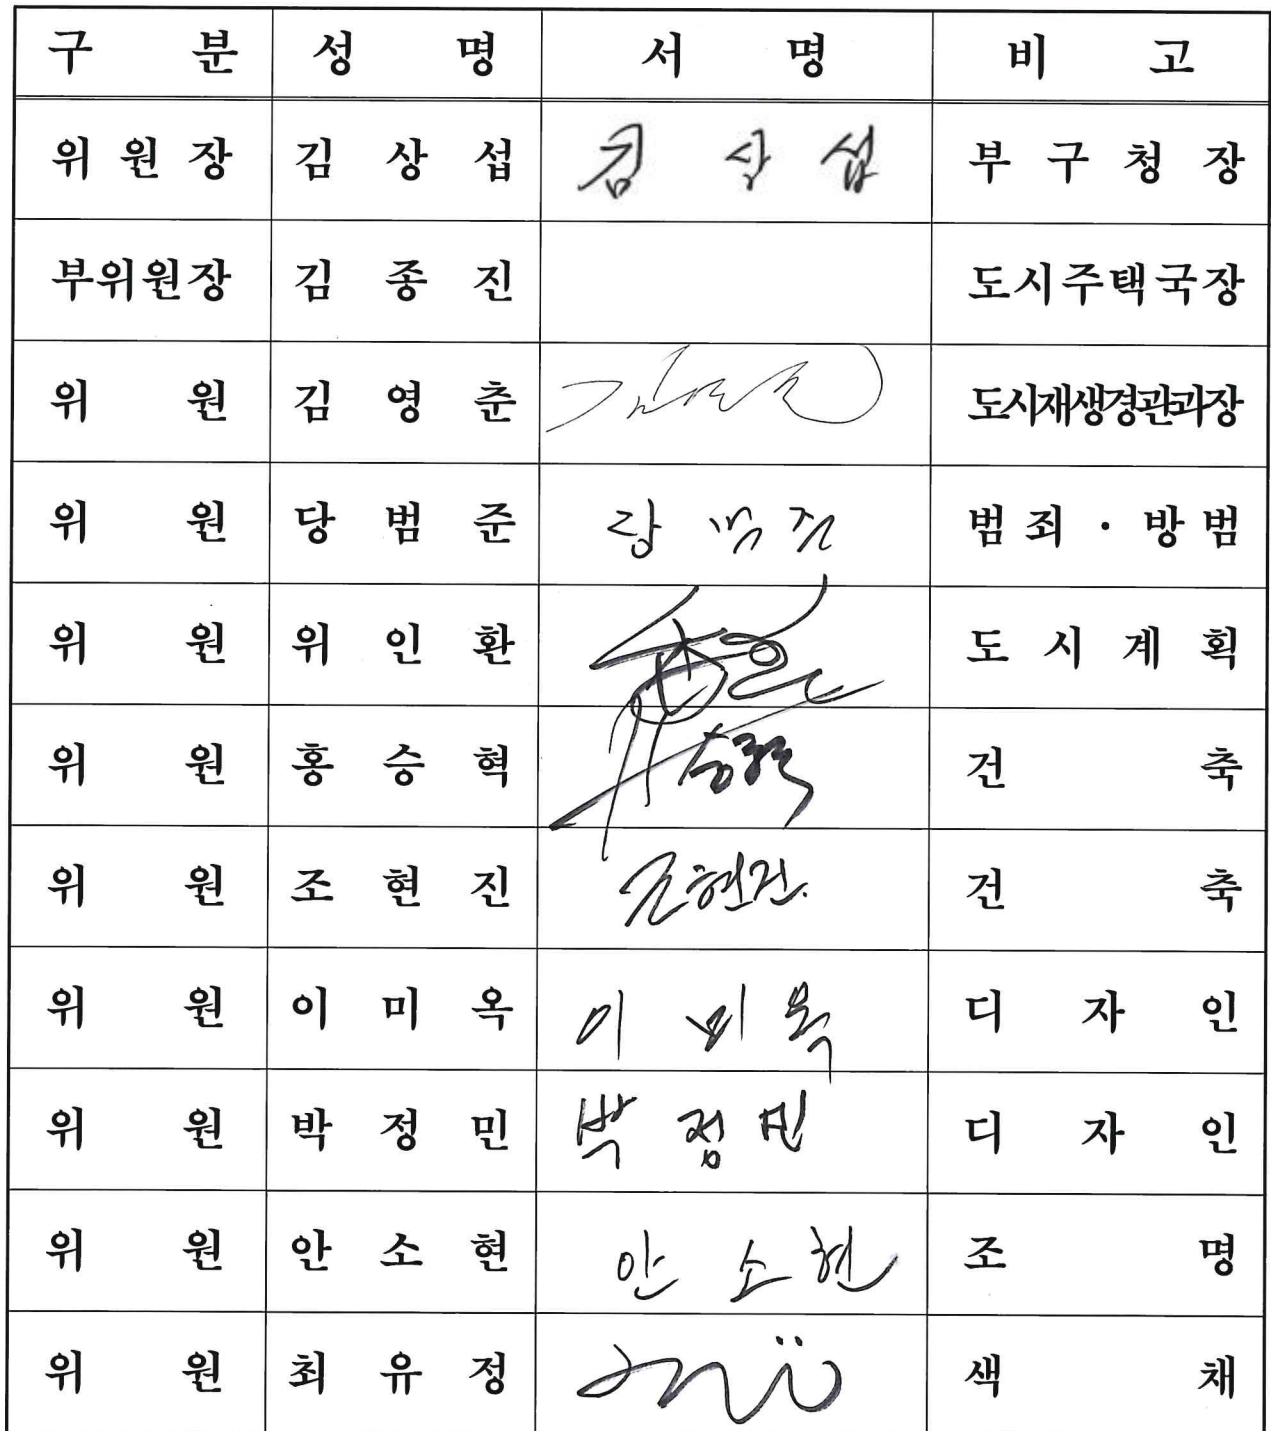 구 분 성 명 서 명 비 고
위 원 장 김 상 섭 김 상 섭 부 구 청 장
부위원장 김 종 진 도시주택국장
위 원 김 영 춘 도시재생경관과장
위 원 당 범 준 당 범 준 범 죄 · 방 범
위 원 위 인 환 도 시 계 획
위 원 홍 승 혁 승혁 건 축
위 원 조 현 진 조현진. 건 축
위 원 이 미 옥 이 미 옥 디 자 인
위 원 박 정 민 박 정 민 디 자 인
위 원 안 소 현 안 소 현 조 명
위 원 최 유 정 색 채